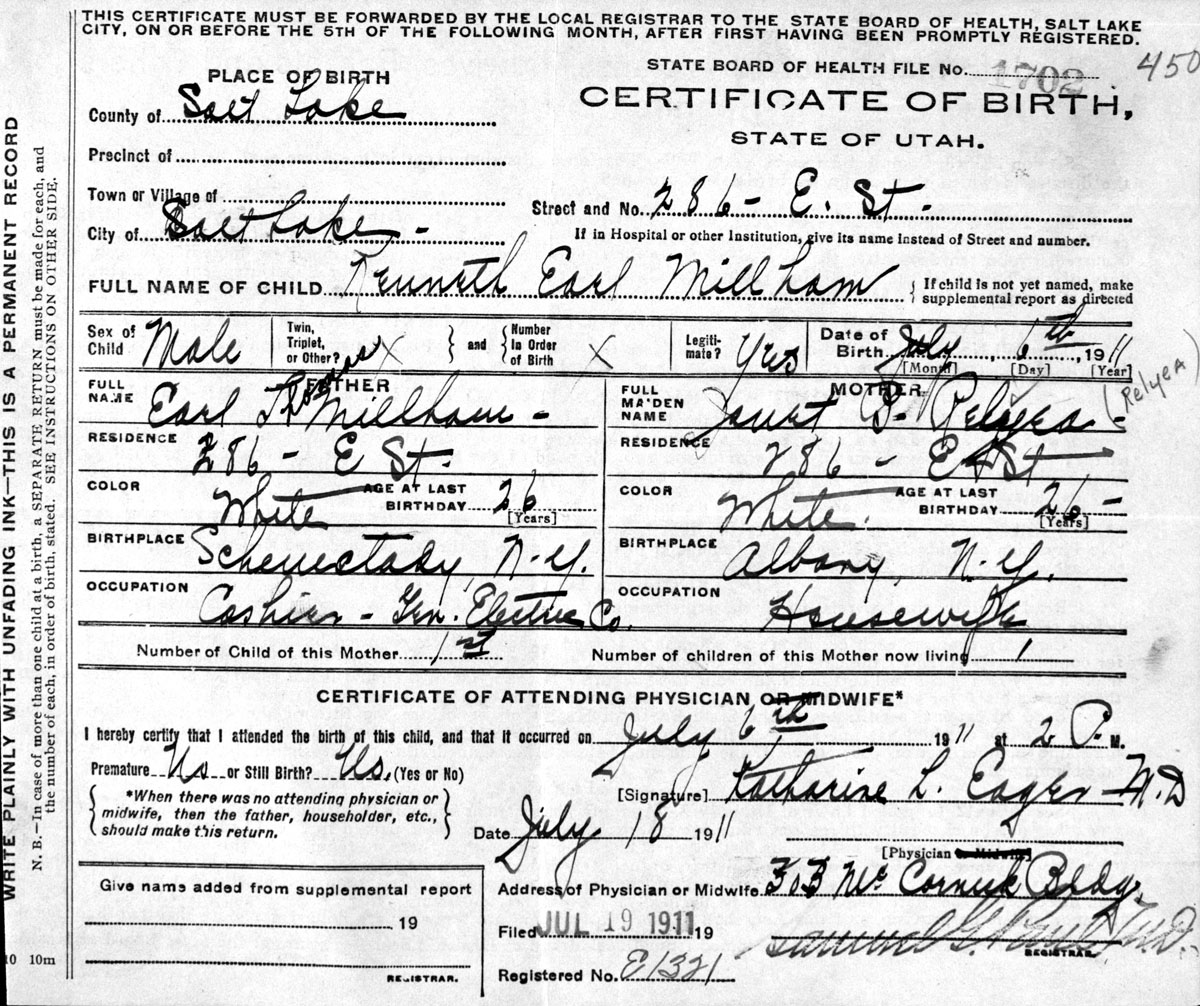 THIS CERTIFICATE MUST BE FORWARDED BY THE LOCAL REGISTRAR TO THE STATE BOARD OF HEALTH, SALT LAKE
CITY, ON OR BEFORE THE 5TH OF THE FOLLOWING MONTH, AFTER FIRST HAVING BEEN PROMPTLY REGISTERED.
STATE BOARD OF HEALTH FILE No. 1702 450
PLACE OF BIRTH
CERTIFICATE OF BIRTH,
STATE OF UTAH.
County of Salt Lake
Precinct of
Town or Village of
Street and No. 286 - E. St -
City of Salt Lake -
If in Hospital or other Institution, give its name instead of Street and number.
FULL NAME OF CHILD Kenneth Earl Millham { If child is not yet named, make
supplemental report as directed
Sex of Child Male Twin, Triplet, or Other? X } and { Number In Order of Birth X Legiti-mate? Yes Date of Birth July, 6th, 1911
[Month] [Day] [Year]
FATHER MOTHER
FULL NAME Earl Millham - FULL MAIDEN NAME Janet B. Relyea - (Relyea)
RESIDENCE 286 - E St. RESIDENCE 286 - E St
COLOR White AGE AT LAST BIRTHDAY 26 [Years] COLOR White. AGE AT LAST BIRTHDAY 26 - [Years]
BIRTHPLACE Schenectady, N-Y. BIRTHPLACE Albany, N-Y.
OCCUPATION Cashier - Gen. Electric Co. OCCUPATION Housewife
Number of Child of this Mother 1st Number of children of this Mother now living 1
CERTIFICATE OF ATTENDING PHYSICIAN OR MIDWIFE*
I hereby certify that I attended the birth of this child, and that it occurred on July 6th 1911 at 2 P. M.
Premature No or Still Birth? No. (Yes or No)
[Signature] Katharine L. Eager - M.D
{ *When there was no attending physician or
midwife, then the father, householder, etc.,
should make this return. }
Date July 18 1911
[Physician or Midwife]
Address of Physician or Midwife 303 McCornick Bldg.
Give name added from supplemental report
19
REGISTRAR.
Filed JUL 19 1911 19 Samuel G. M.D.
REGISTRAR.
Registered No. E1321
WRITE PLAINLY WITH UNFADING INK—THIS IS A PERMANENT RECORD
N. B.—In case of more than one child at a birth, a SEPARATE RETURN must be made for each, and
the number of each, in order of birth, stated. SEE INSTRUCTIONS ON OTHER SIDE.
10 10m